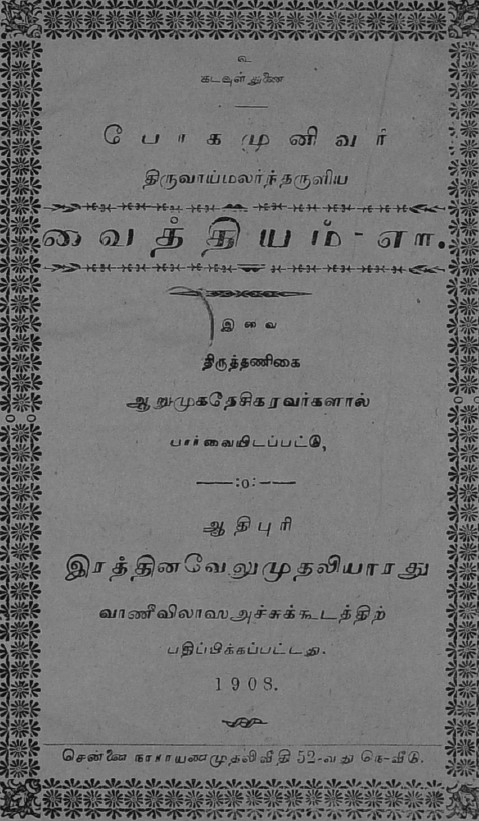 உ
கடவுள் துணை
போகமுனிவர்
திருவாய்மலர்ந்தருளிய
வைத்தியம்-எ௱.
இவை
திருத்தணிகை
ஆறுமுகதேசிகரவர்களால்
பார்வையிடப்பட்டு,
:o:
ஆதிபுரி
இரத்தினவேலுமுதலியாரது
வாணீவிலாஸஅச்சுக்கூடத்திற்
பதிப்பிக்கப்பட்டது.
1908.
சென்னை நாராயணமுதலிவீதி 52-வது நெ-வீடு.